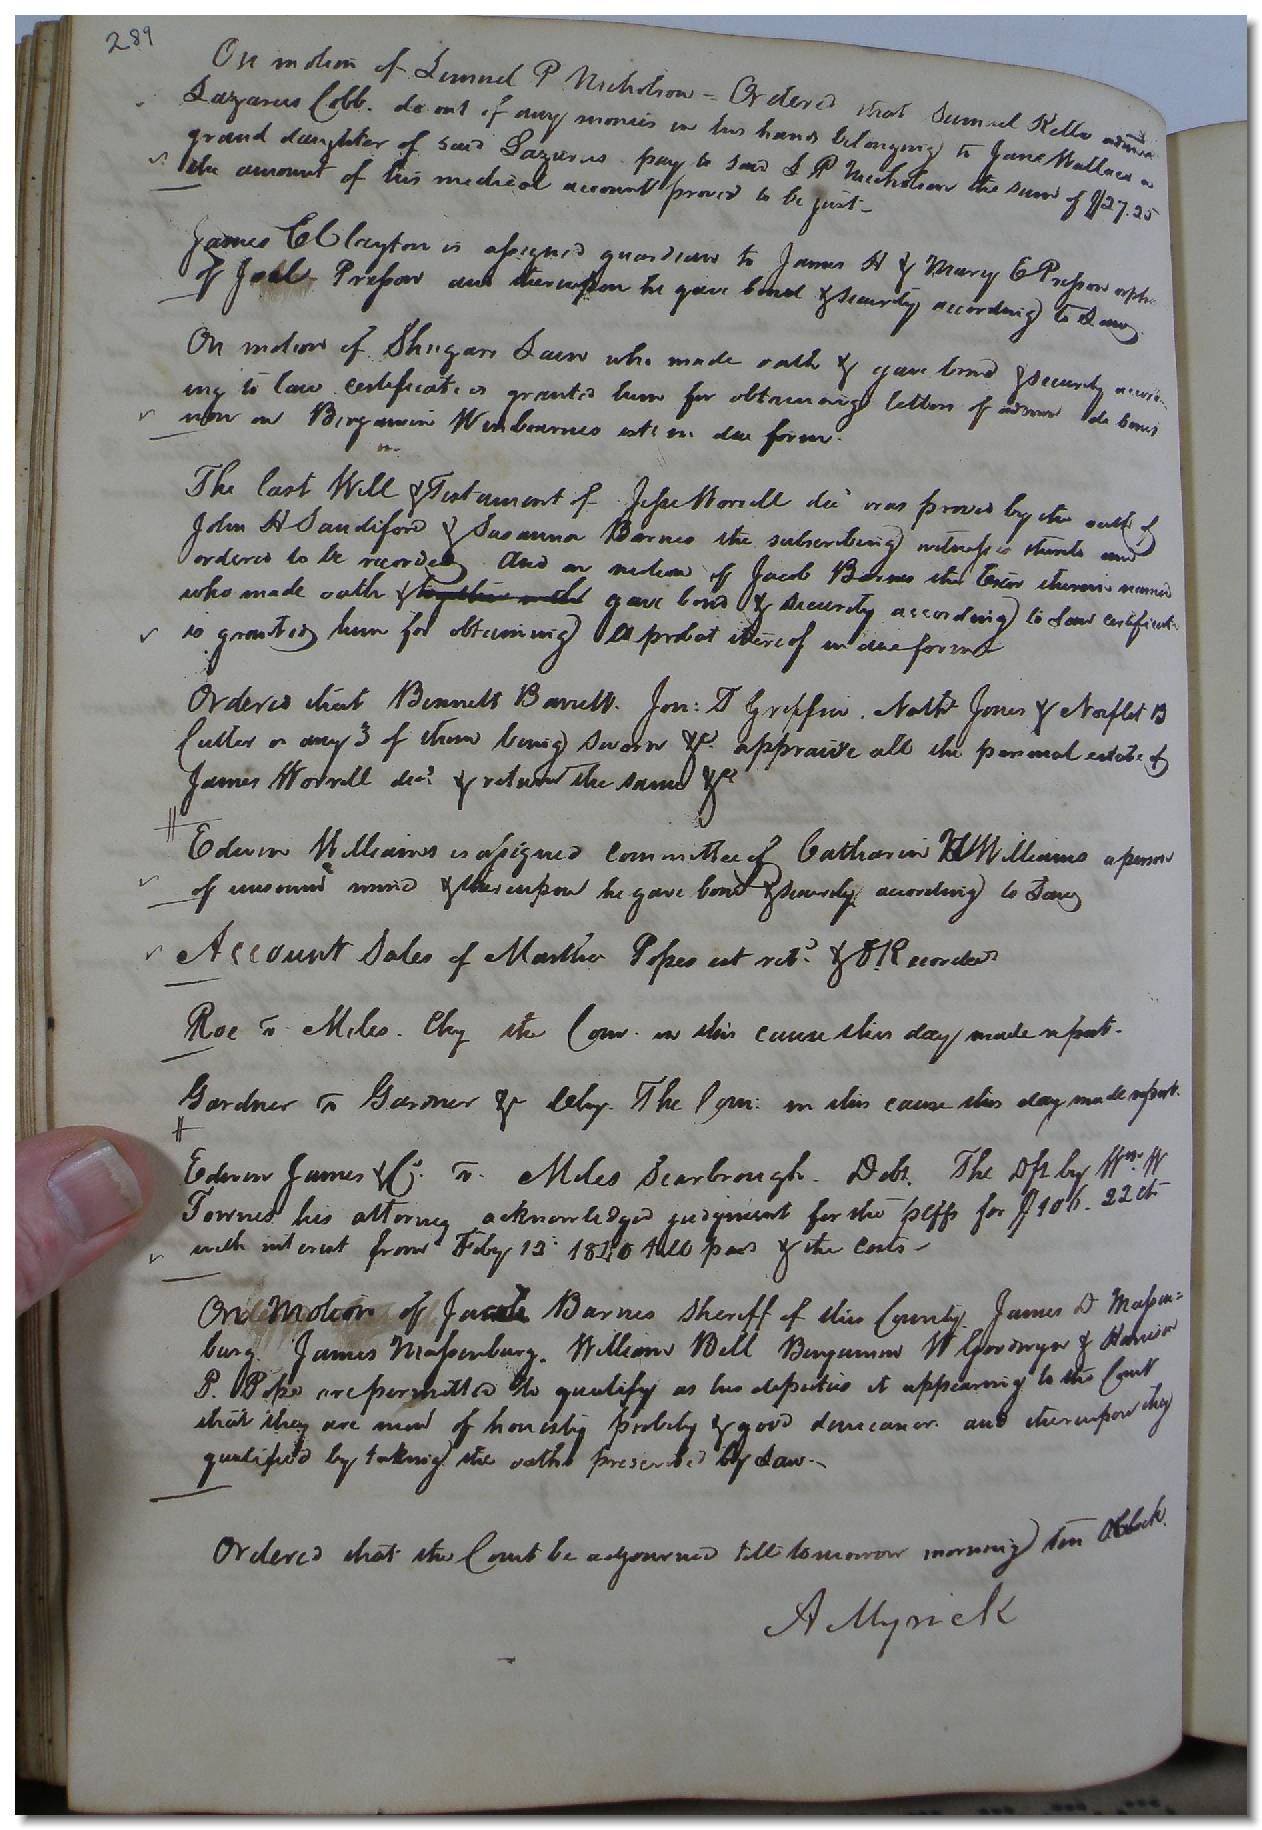 289
On motion of Lemuel P Nicholson = Ordered that Samuel Kello admr
Lazarus Cobb. do out of any monies in his hands belonging to Jane Wallace a
grand daughter of said Lazarus pay to said L P Nicholson the sum of $27.25
the amount of his medical account proved to be just -
James C Clayton is assigned guardian to James H & Mary E Presson orph
of Joel Presson and thereupon he gave bond & security according to Law
On motion of Shugars Lain who made oath & gave bond & security accord-
ing to law certificate is granted him for obtaining letters of admon de bonis
non on Benjamin Wimbournes est in due form.
The last Will & Testament of Jesse Worrell decd was proved by the oath of
John H Sandiford & Susanna Barnes the subscribing witnesses thereto and
ordered to be recorded and on motion of Jacob Barnes the Exor therein named
who made oath & together with gave bond & security according to Law certificate
is granted him for obtaining a probat thereof in due form
Ordered that Bennett Barrett. Jon: D Griffin. Nathl Jones & Norflet B
Cutler or any 3 of them being sworn &c appraise all the personal estate of
James Worrell decd & return the same &c
Edwin Williams is assigned committee of Catharine Williams a person
of unsound mind & thereupon he gave bond & security according to Law
Account Sales of Martha Popes est retd & O Recorded
Roe vs Miles. Chy the Com. in this cause this day made report.
Gardner vs Gardner & Chy. The Com: in this cause this day made report.
Edwin James & Co. vs. Miles Scarbrough. Debt. The Dft by Wm W
Townes his attorney acknowledged judgment for the plffs for 22 cts
with interest from Feby 12 1840 till paid & the costs -
On Motion of Jacob Barnes Sheriff of this County. James D Massen=
burg. James Massenburg. William Bell Benjamin W Goodwyn & Harrison
P. Pope are permitted to qualify as his deputies it appearing to the Court
that they are men of honesty probity & good demeanor and thereupon they
qualified by taking the oaths prescribed by Law. -
Ordered that the Court be adjourned till tomorrow morning ten OClock.
A Myrick